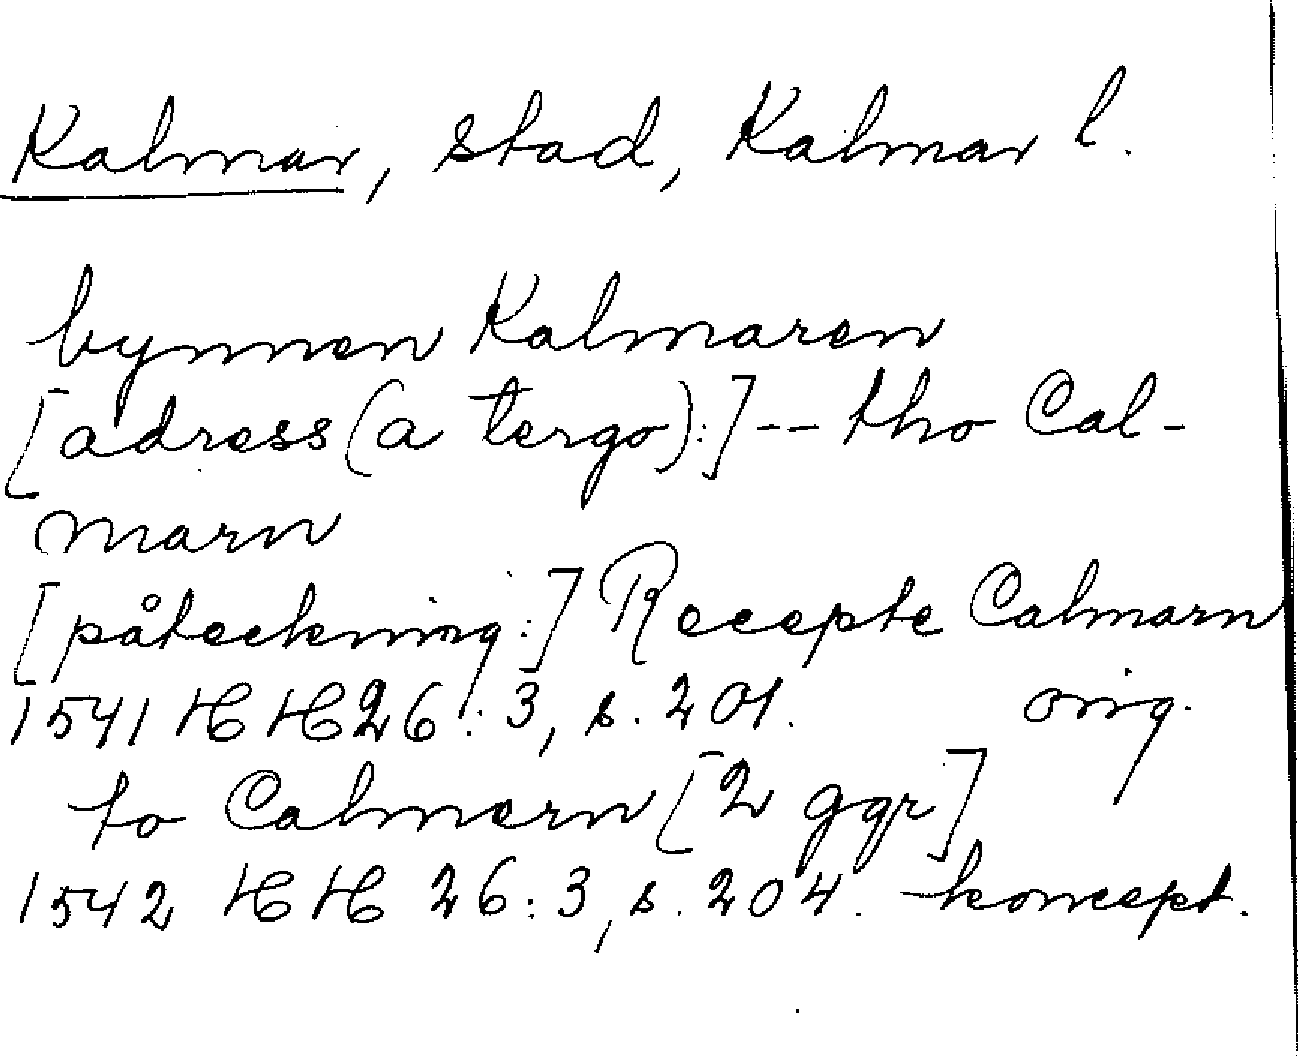 Kalmar, stad, Kalmar l.
bynnen Kalmaren
[adress (a tergo):] -- tho Cal-
marn
[påteckning:] Recepte Calmarn
1541 HH 26:3, s. 201. orig.
to Calmern [2 ggr]
1542 HH 26:3, s. 204. koncept.